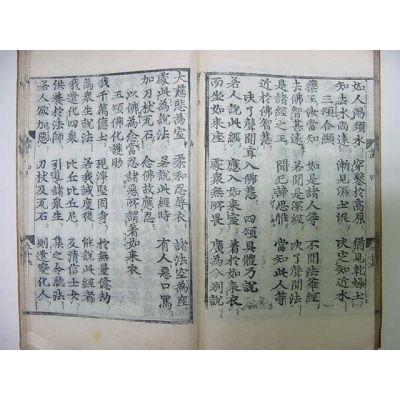 如人渴須水 穿鑿於高原 猶見乾燥土
知去水尚遠 漸見濕土泥 決定知近水
三頌合顯
藥王汝當知 如是諸人等 不聞法華經
去佛智甚遠 若聞是深經 決了聲聞法
是諸經之王 聞已諦思惟 當知此人等
近於佛智慧
決了聲聞直入佛慧 四頌具體乃說
若人說此經 應入如來室 著於如來衣
而坐如來座 處衆無所畏 廣為分別說
大慈悲為室 柔和忍辱衣 諸法空為座
處此為說法 若說此經時 有人惡口罵
加刀杖瓦石 念佛故應忍
以佛為念當忍諸辱所謂著如來衣
五頌佛化護助
我千萬億土 現淨堅固身 於無量億劫
為衆生說法 若我滅度後 能說此經者
我遣化四衆 比丘比丘尼 及清信士女
供養於法師 引導諸衆生 集之令聽法
若人欲加惡 刀杖及瓦石 則遣變化人